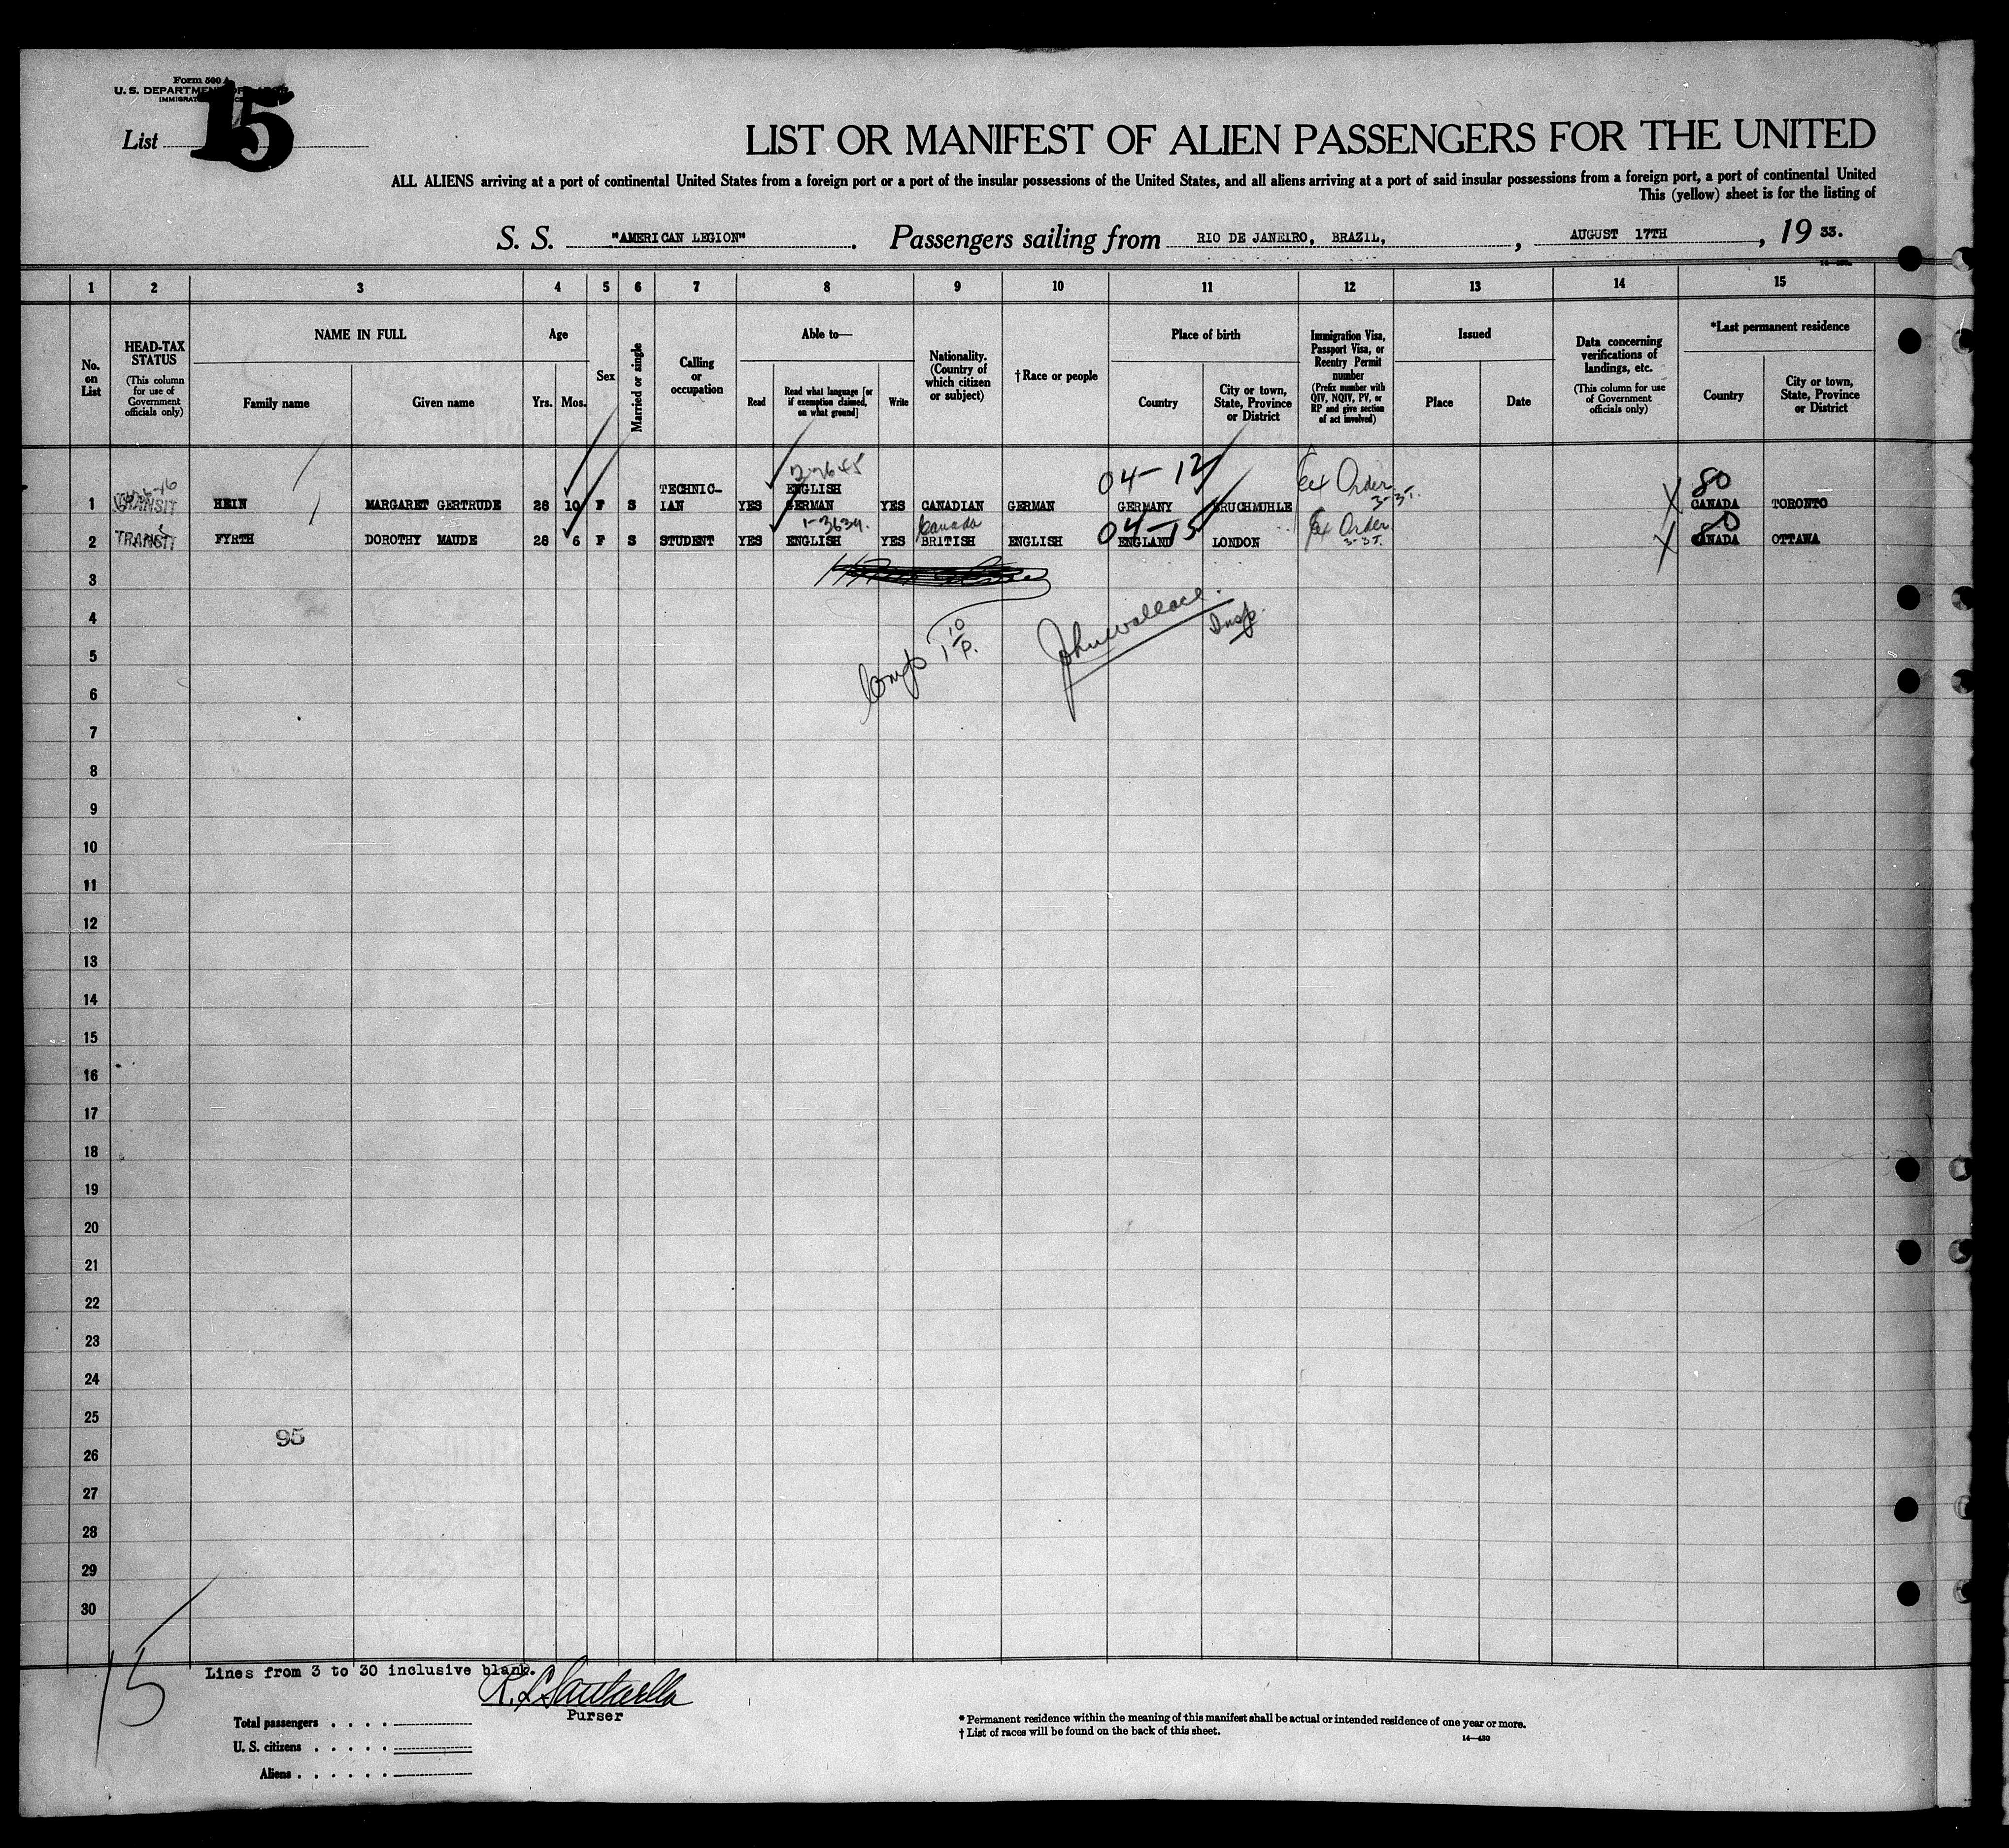 Form 500 A
U. S. DEPARTMENT OF LABOR
List 15
LIST OR MANIFEST OF ALIEN PASSENGERS FOR THE UNITED
ALL ALIENS arriving at a port of continental United States from a foreign port or a port of the insular possessions of the United States, and all aliens arriving at a port of said insular possessions from a foreign port, a port of continental United
This (yellow) sheet is for the listing of
S. S. "AMERICAN LEGION". Passengers sailing from RIO DE JANEIRO, BRAZIL, , AUGUST 17TH , 19 33.
1 2 3 4 5 6 7 8 9 10 11 12 13 14 15
No. on List
HEAD-TAX STATUS
(This column for use of Government officials only)
NAME IN FULL
Family name
Given name
Age
Yrs.
Mos.
Sex
Married or single
Calling or occupation
Able to—
Read
Read what language [or if exemption claimed, on what ground]
Write
Nationality. (Country of which citizen or subject)
† Race or people
Place of birth
Country
City or town, State, Province or District
Immigration Visa, Passport Visa, or Reentry Permit number
(Prefix number with QIV, NQIV, PV, or RP and give section of act involved)
Issued
Place
Date
Data concerning verifications of landings, etc.
(This column for use of Government officials only)
*Last permanent residence
Country
City or town, State, Province or District
04-12 Ex Order 3-3T. 80
1 TRANSIT HEIN MARGARET GERTRUDE 28 10 F S TECHNIC-IAN YES ENGLISH GERMAN YES CANADIAN GERMAN GERMANY BRUCHMUHLE X CANADA TORONTO
1-3634. Canada 04-15 Ex Order 3-3T. 80
2 TRANSIT FYRTH DOROTHY MAUDE 28 6 F S STUDENT YES ENGLISH YES BRITISH ENGLISH ENGLAND LONDON X CANADA OTTAWA
3
4
John Wallace. Insp.
5
6
7
8
9
10
11
12
13
14
15
16
17
18
19
20
21
22
23
24
25
95
26
27
28
29
30
15
Lines from 3 to 30 inclusive blank.
Purser
Total passengers
U. S. citizens
Aliens
* Permanent residence within the meaning of this manifest shall be actual or intended residence of one year or more.
† List of races will be found on the back of this sheet.
14—430